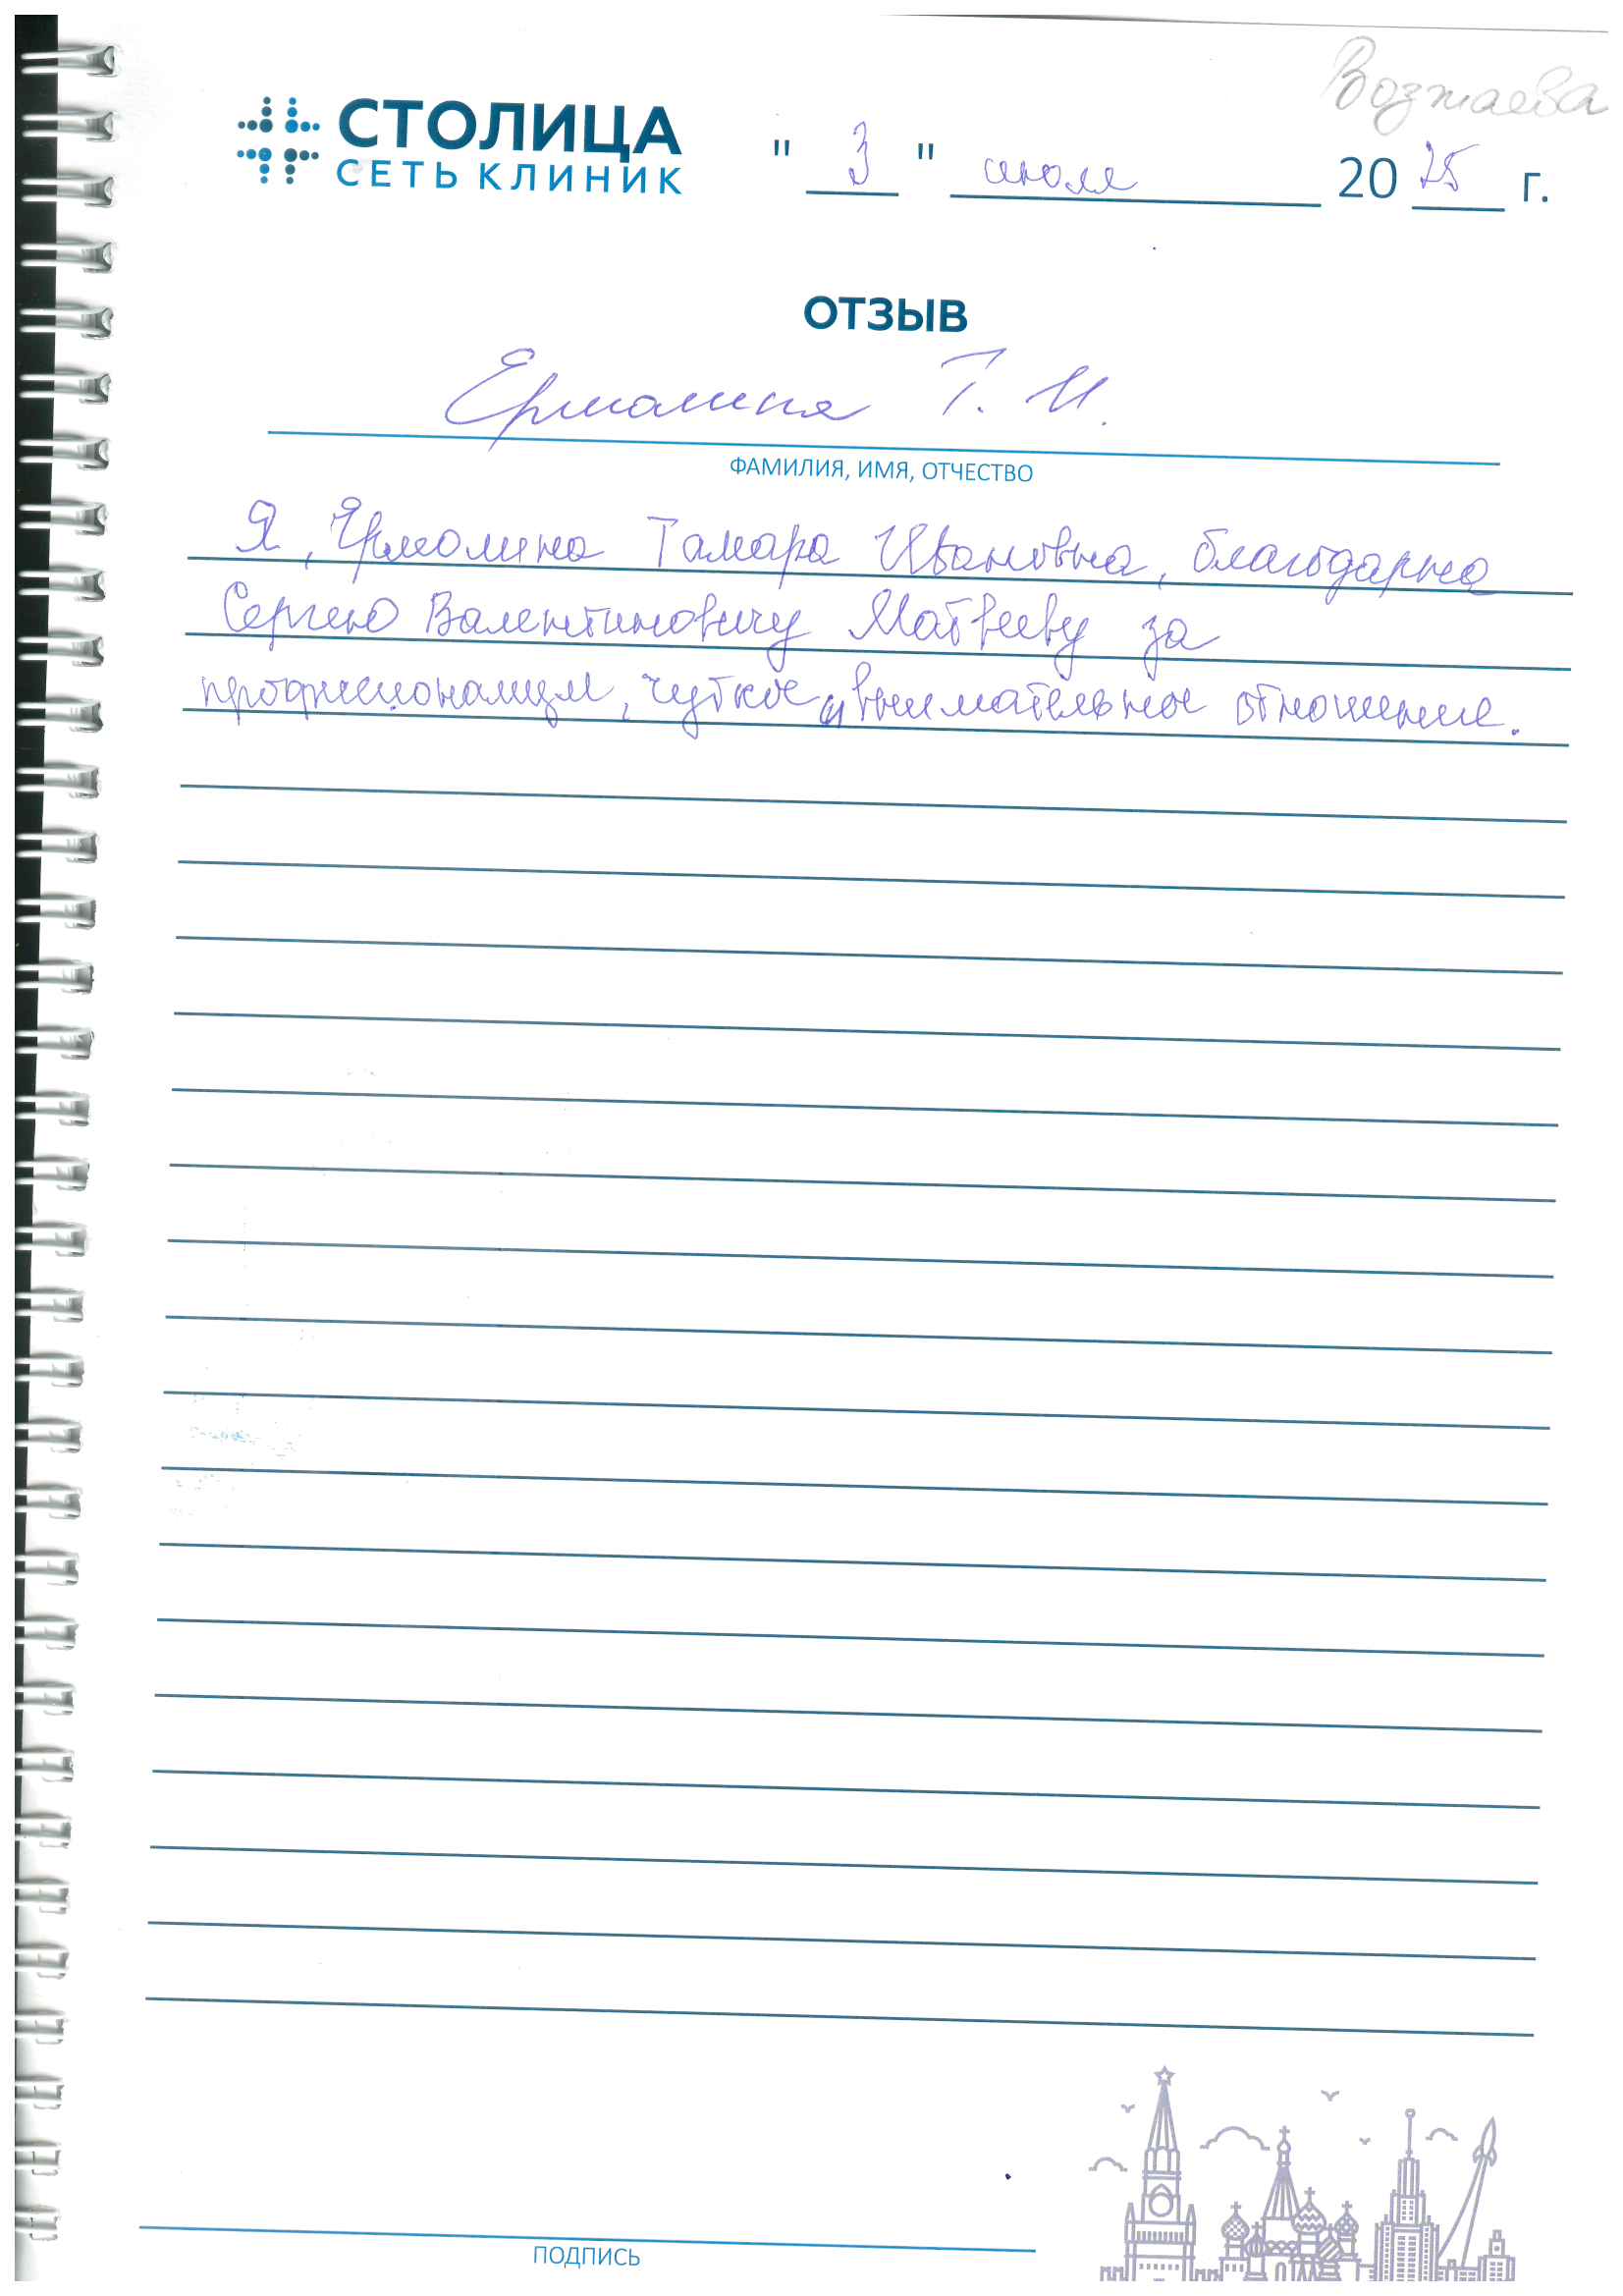 Возжаева
СТОЛИЦА
СЕТЬ КЛИНИК
" 3 " июля 2025 г.
ОТЗЫВ
Ермолина Т. И.
ФАМИЛИЯ, ИМЯ, ОТЧЕСТВО
Я, Ермолина Тамара Ивановна, благодарна
Сергею Валентиновичу Матвееву за
профессионализм, чуткое и внимательное отношение.
ПОДПИСЬ